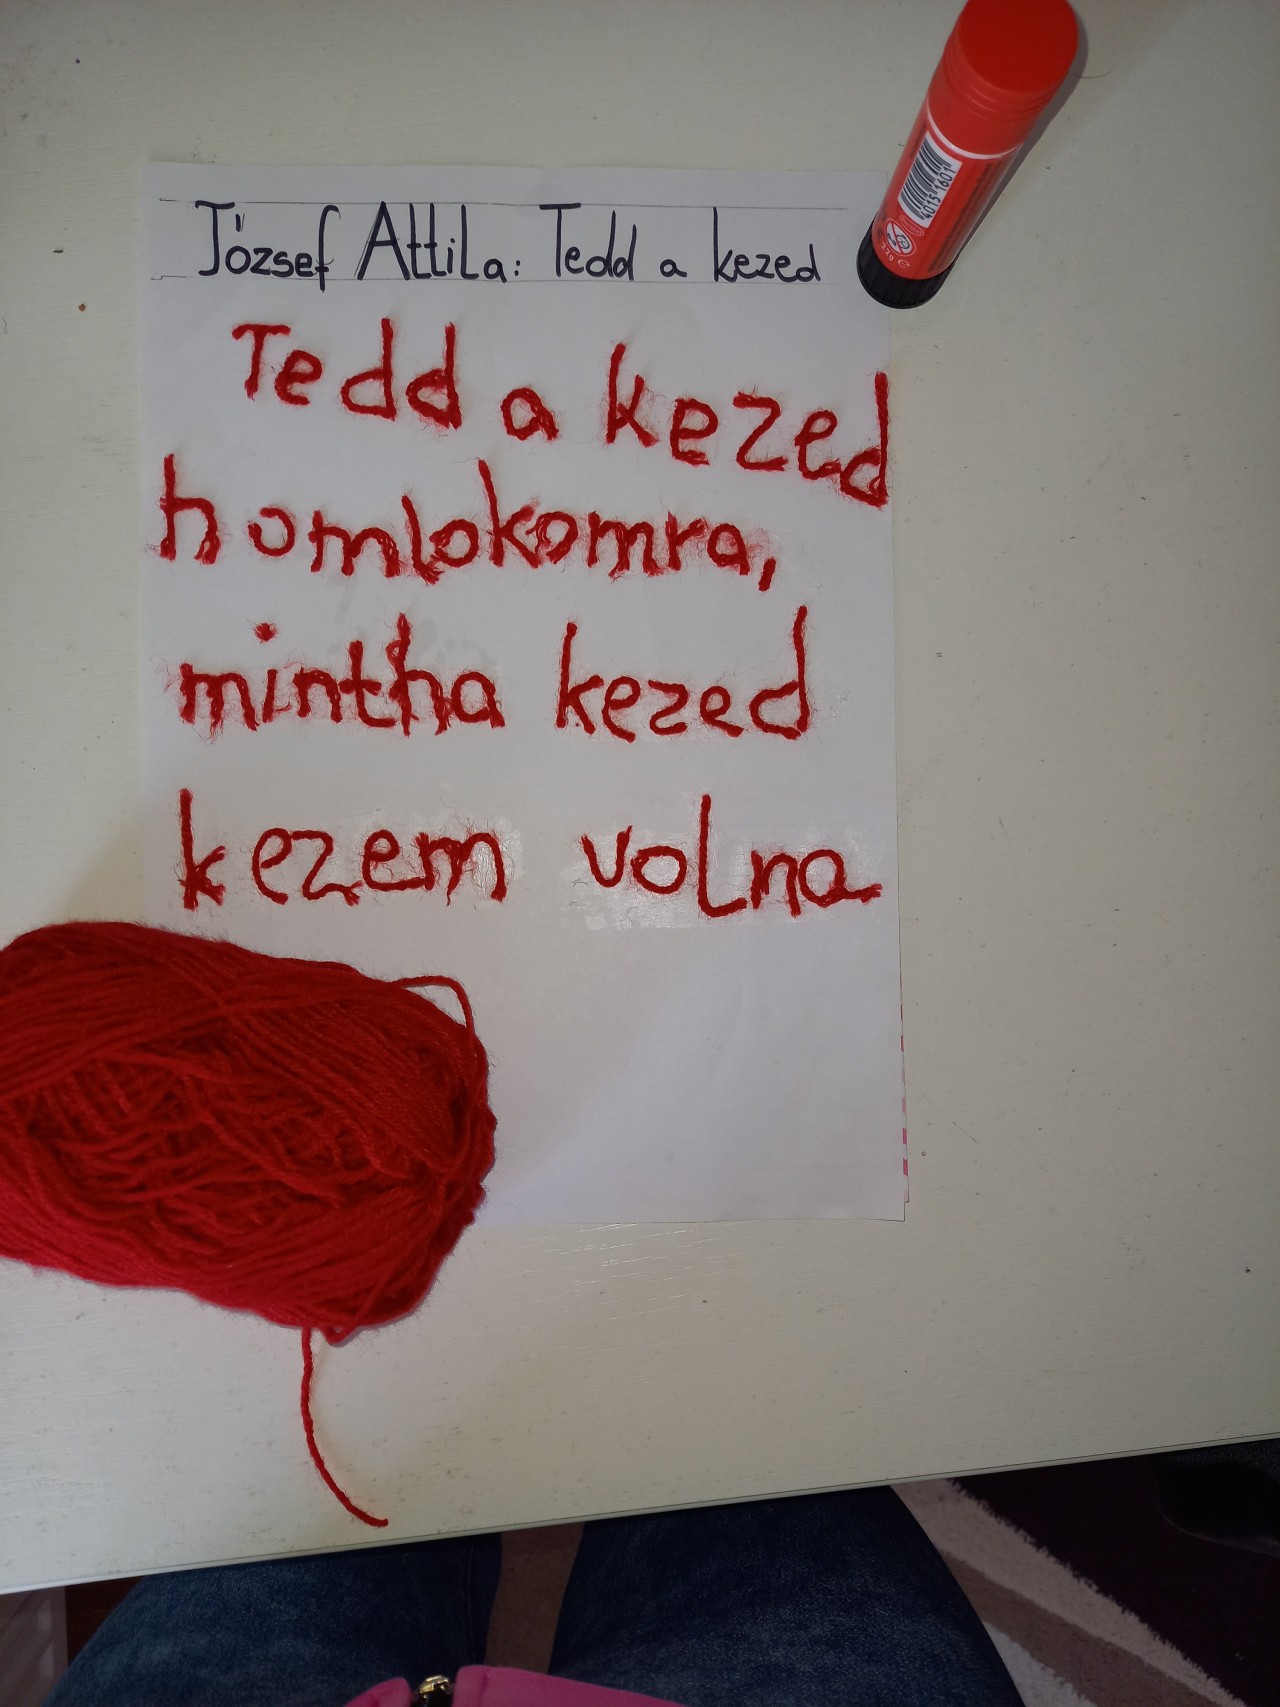 József Attila: Tedd a kezed
Tedd a kezed
homlokomra,
mintha kezed
kezem volna
4015"1601"
22g e